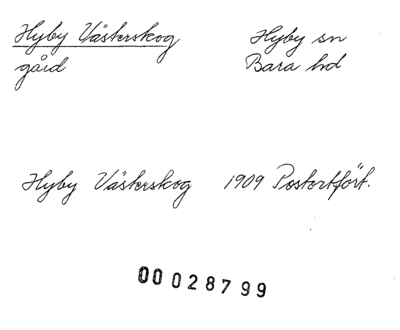 Hyby Västerskog Hyby sn
gård Bara hd
Hyby Västerskog 1909 Postortfört.
00028799